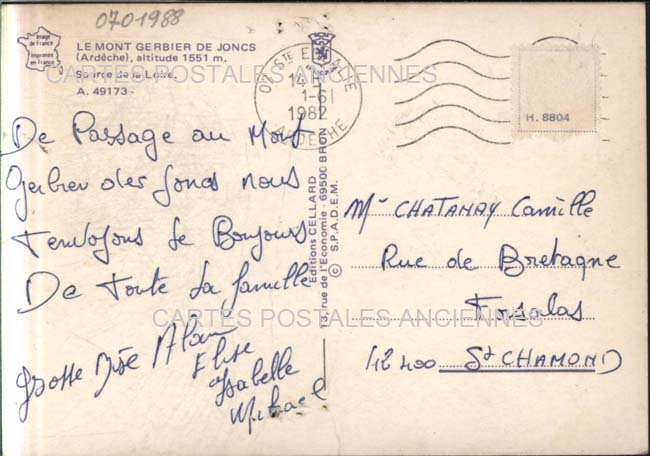 070-1988
Image de France
Imprimée en France
LE MONT GERBIER DE JONCS
(Ardèche), altitude 1551 m.
Source de la Loire.
A. 49173 -
CARTES POSTALES ANCIENNES
07 STE EULALIE
14 H
1-6
1982
ARDECHE
H. 8804
De Passage au Mont
Gerbier des joncs nous
t'envoyons le Bonjours
De toute la famille
Grosse Bise Alain
Elise
Isabelle
Mickael
Editions CELLARD
13, rue de l'Economie - 69500 BRON
© S.P.A.D.E.M.
Mr CHATANAY Camille
Rue de Bretagne
Fonsalas
42400 St CHAMOND
CARTES POSTALES ANCIENNES